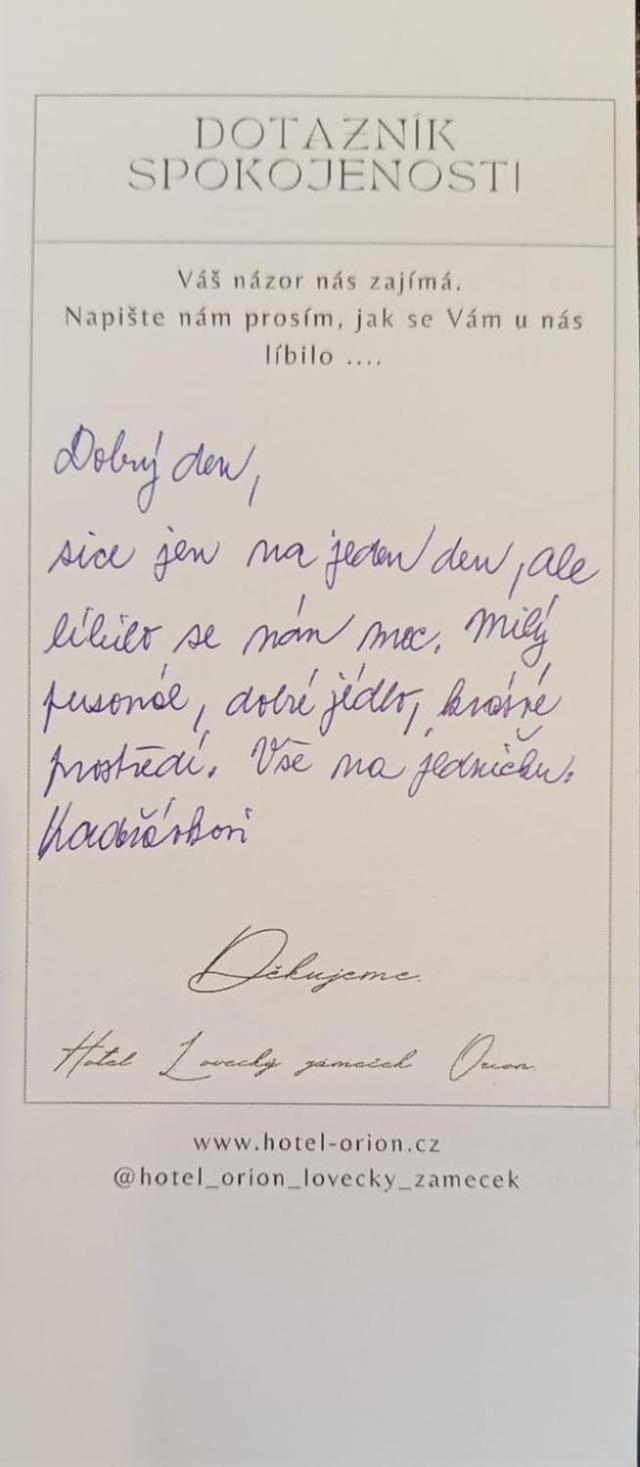 DOTAZNÍK
SPOKOJENOSTI
Váš názor nás zajímá.
Napište nám prosím, jak se Vám u nás
líbilo ....
Dobrý den,
sice jen na jeden den, ale
líbilo se nám moc. Milý
personál, dobré jídlo, krásné
prostředí. Vše na jedničku.
Děkujeme.
Hotel Lovecký zámeček Orion
www.hotel-orion.cz
@hotel_orion_lovecky_zamecek